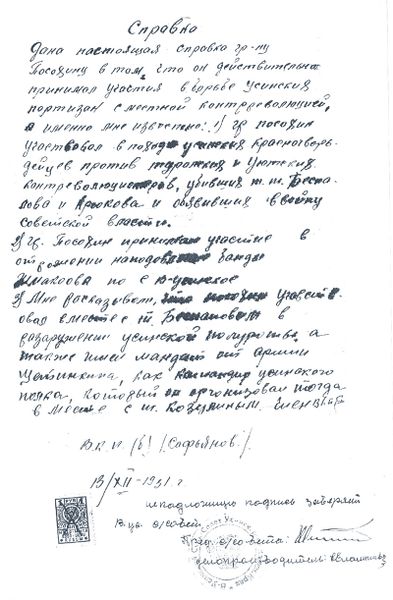 Справка
Дана настоящая справка гр-ну
Посохину в том, что он действительно
принимал участия в борьбе Усинских
партизан с местной контрреволюцией,
а именно мне известно: 1) гр. посохин
участвовал в походе усинских красногвар-
дейцев против туранских и Уюкских
контрреволюционеров, убивших т.т. Беспа-
лова и Крюкова и объявивших войну
советской власти.
2) Гр. Посохин принимал участие в
отражении нападения банды
по с В-усинское
3) Мне рассказывали, что посохин участв-
овал вместе с т. Беспаловым в
разоружении усинской а
также имел мандат от армии
Щетинкина, как командир усинского
полка, который он организовал тогда
в месте с т.
В.К.П. (б) (Сафьянов).
13/XII-1931 г.
подпись заверяет